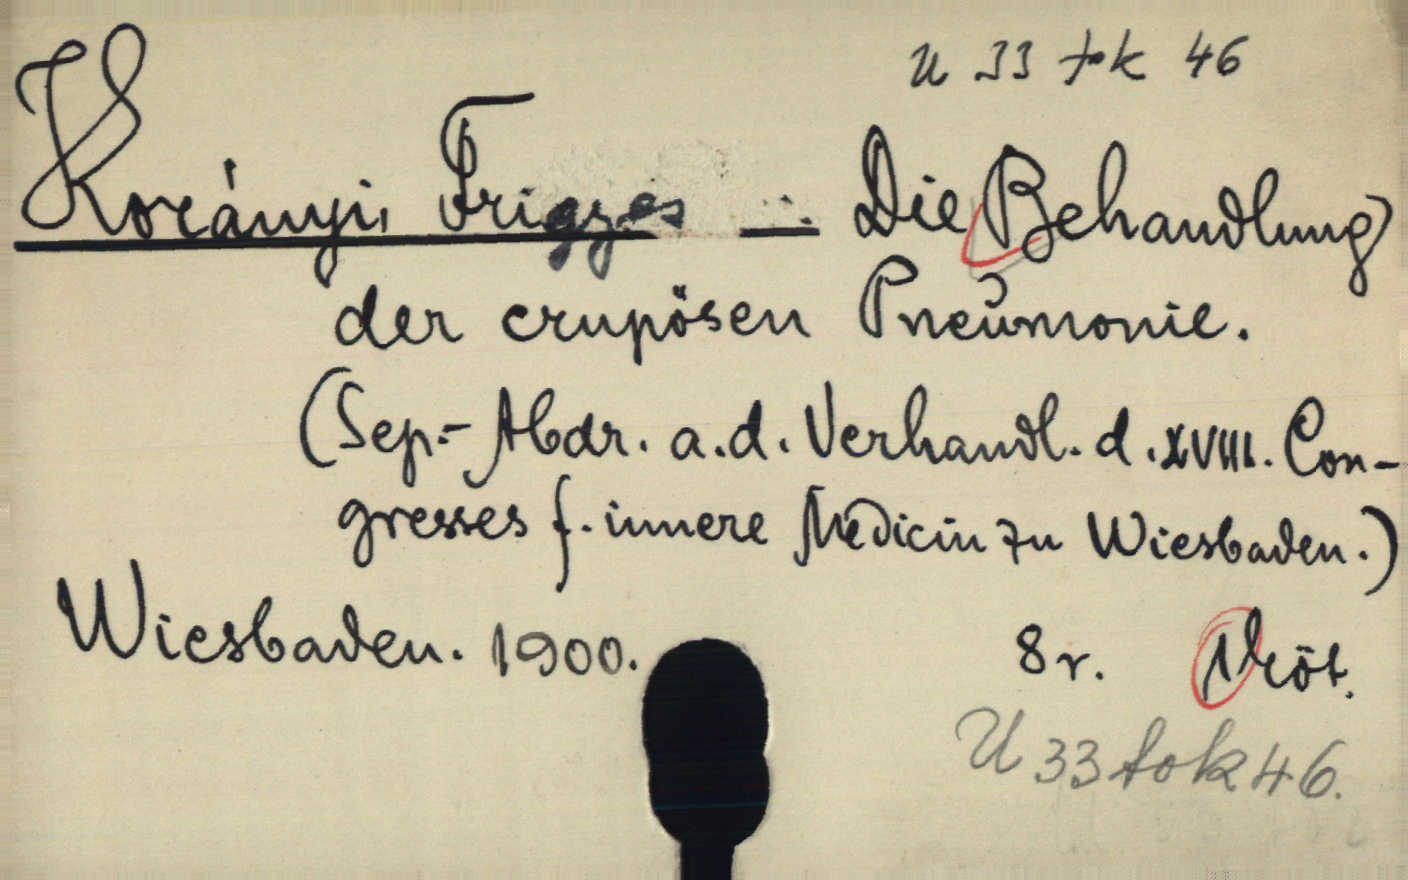 U 33 tok 46
Korányi, Frigyes : Die Behandlung
der crupösen Pneumonie.
(Sep.- Abdr. a. d. Verhandl. d. XVIII. Con-
gresses f. innere Medicin zu Wiesbaden.)
Wiesbaden. 1900. 8 r. 1 köt.
U 33 tok 46.